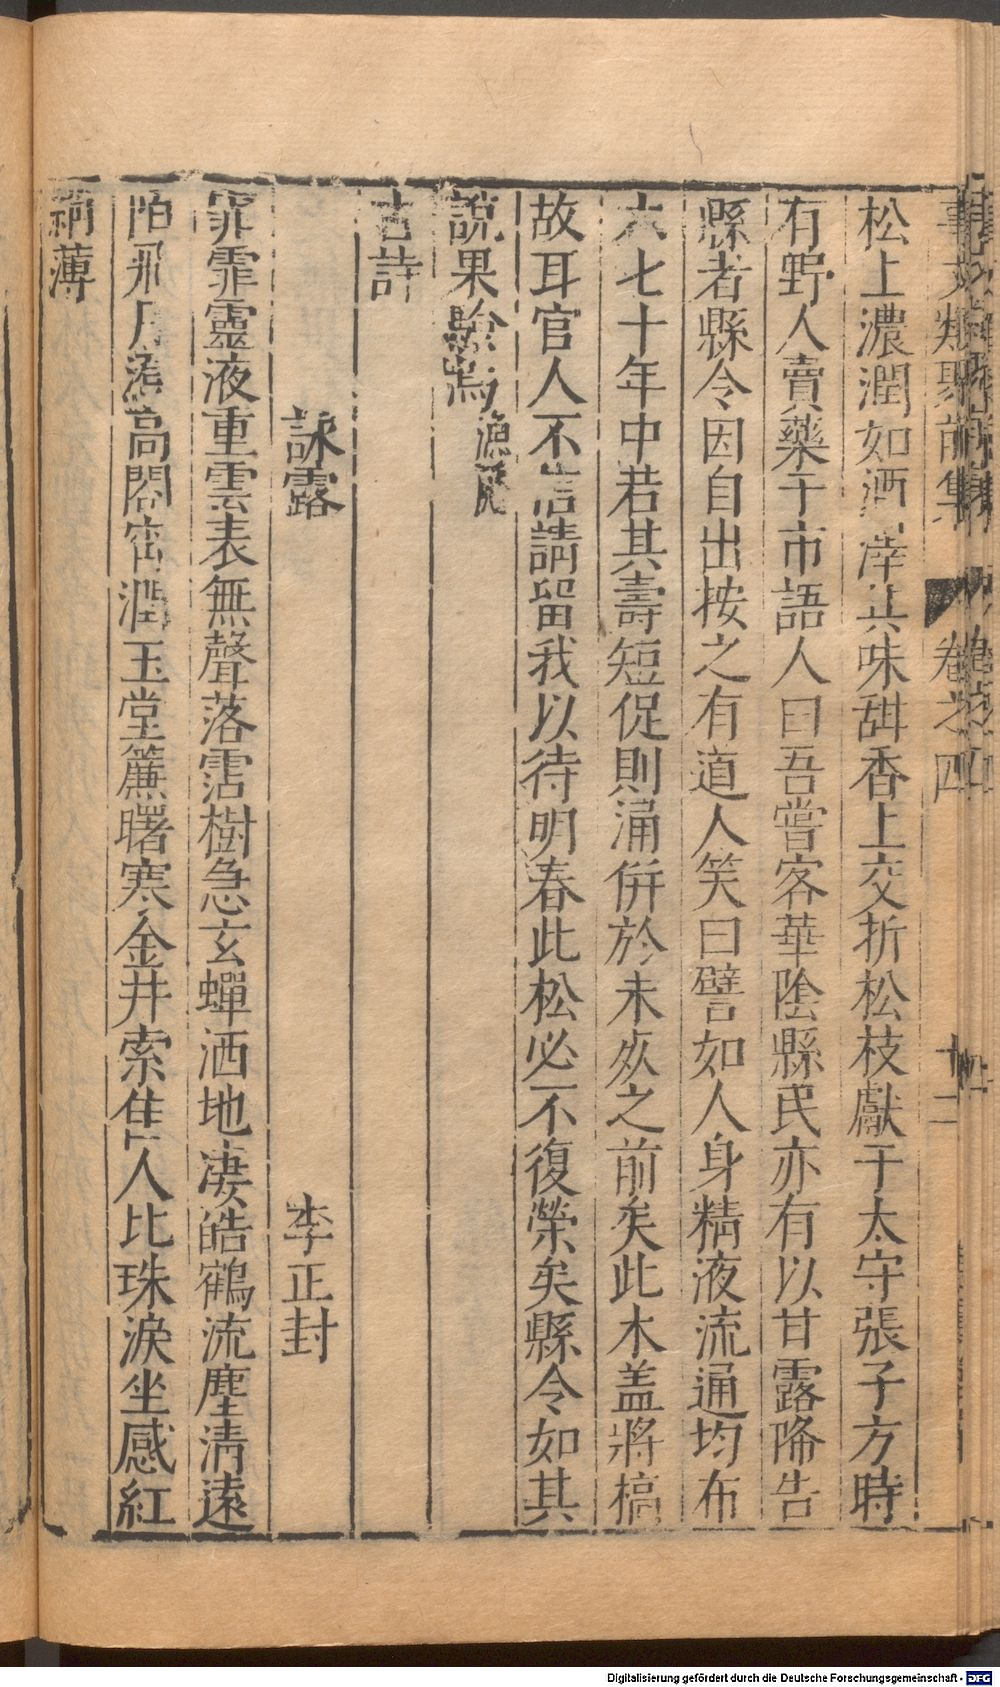 事文類聚前集 卷之四 十二
松上濃潤如洒滓其味甜香上交折松枝獻于太守張子方時
有野人賣藥于市語人曰吾嘗客華陰縣民亦有以甘露降告
縣者縣令因自出按之有道人笑曰譬如人身精液流通均布
六七十年中若其壽短促則涌併於未死之前矣此木盖將槁
故耳官人不信請留我以待明春此松必不復榮矣縣令如其
說果驗焉漁隱
古詩
詠露 李正封
霏霏靈液重雲表無聲落霑樹急玄蟬洒地凄皓鶴流塵清遠
陌飛月澄高閣宻潤玉堂簾曙寒金井索佳人比珠淚坐感紅
綃薄
Digitalisierung gefördert durch die Deutsche Forschungsgemeinschaft - DFG